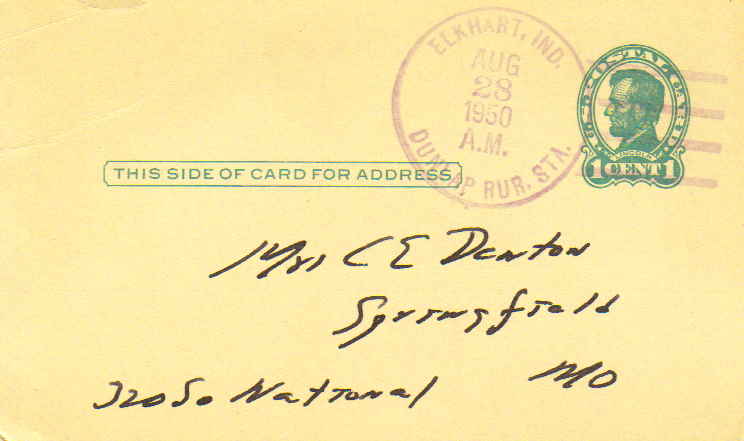 ELKHART, IND.
AUG
28
1950
A.M.
DUNLAP RUR. STA.
U.S. POSTAL CARD
LINCOLN
1 CENT 1
THIS SIDE OF CARD FOR ADDRESS
Mrs C E Denton
Springfield
320 So National Mo